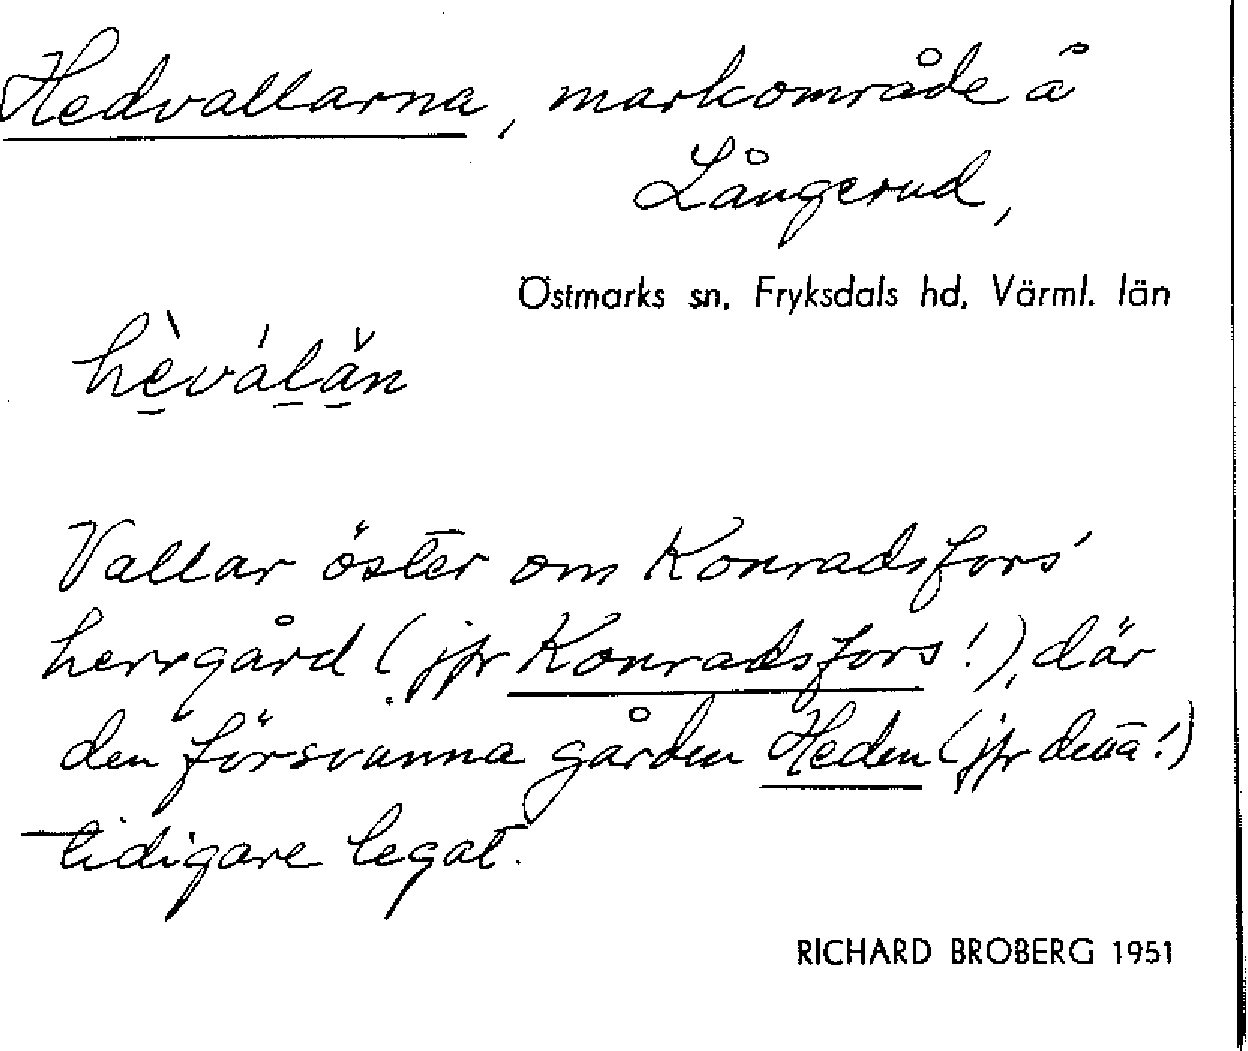 Hedvallarna, markområde å
Långerud,
Östmarks sn, Fryksdals hd, Värml. län
Vallar öster om Konradsfors'
herrgård (jfr Konradsfors!), där
den försvunna gården Heden (jfr denna!)
tidigare legat.
RICHARD BROBERG 1951